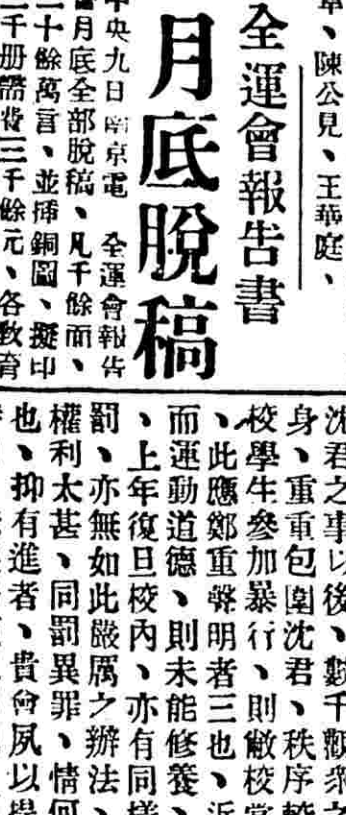 陳公見、王華庭、
全運會報告書
月底脫稿
中央九日南京電　全運會報告
月底全部脫稿、凡千餘面、
二十餘萬言、並插銅圖、擬印
二千册需費三千餘元、各教育
沈君之事以後、數千觀衆之
身、重重包圍沈君、秩序
校學生參加暴行、則敝校當
、此應鄭重聲明者三也、近
而運動道德、則未能修養、
、上年復旦校內、亦有同樣
罰、亦無如此嚴厲之辦法、
權利太甚、同罰異罪、情何
也、抑有進者、貴會夙以